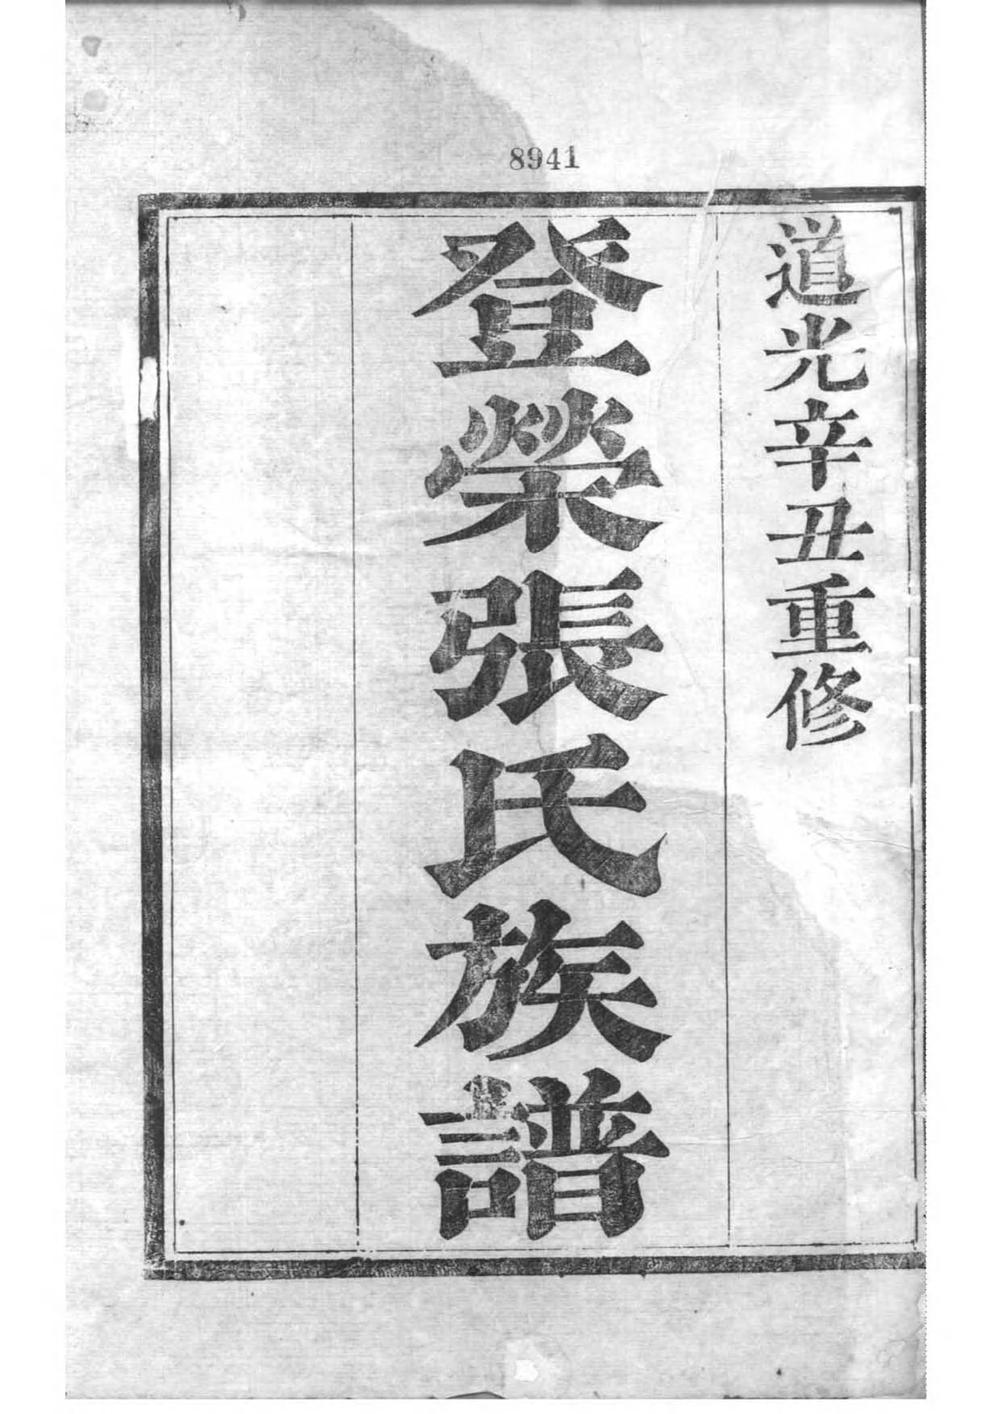 8941
道光辛丑重修
登榮張氏族譜